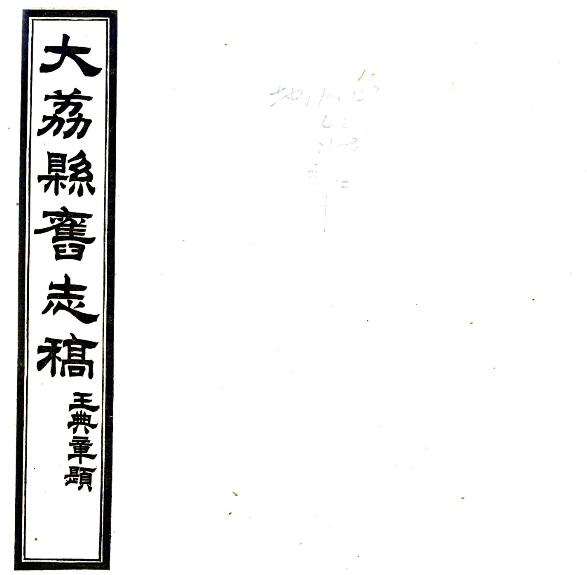 大荔縣舊志稿
王典章題